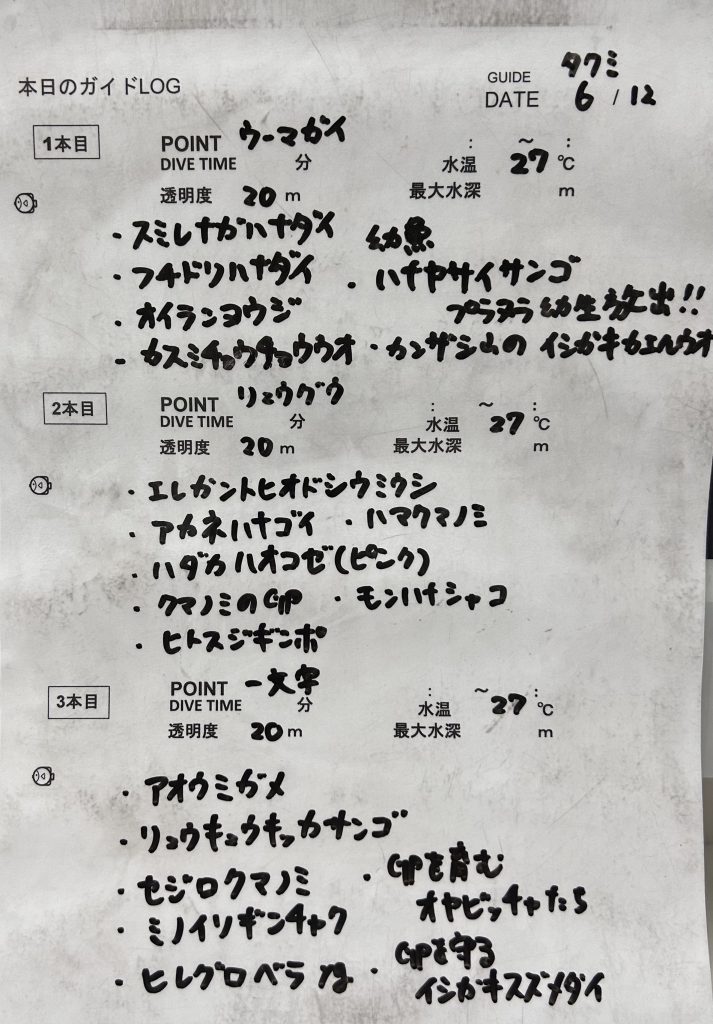 本日のガイドLOG
GUIDE タクミ
DATE 6 / 12
1本目
POINT ウーマガイ : ～ :
DIVE TIME 分 水温 27 ℃
透明度 20 m 最大水深 m
・スミレナガハナダイ 幼魚
・フチドリハナダイ ・ハナヤサイサンゴ
プラヌラ幼生放出!!
・オイランヨウジ
- カスミチョウチョウウオ ・カンザシ山の イシガキカエルウオ
2本目
POINT リュウグウ : ～ :
DIVE TIME 分 水温 27 ℃
透明度 20 m 最大水深 m
・エレガントヒオドシウミウシ
・アカネハナゴイ ・ハマクマノミ
・ハダカハオコゼ(ピンク)
・クマノミの ・モンハナシャコ
・ヒトスジギンポ
3本目
POINT 一文字 : ～ :
DIVE TIME 分 水温 27 ℃
透明度 20 m 最大水深 m
・アオウミガメ
・リュウキュウキッカサンゴ
・セジロクマノミ ・を育む
オヤビッチャたち
・ミノイソギンチャク
・ヒレグロベラ yg ・を守る
イシガキスズメダイ